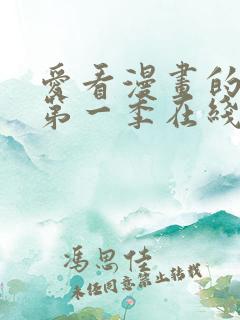 愛看漫畫的
第一季在綫
馮思佳
未經同意禁止转载